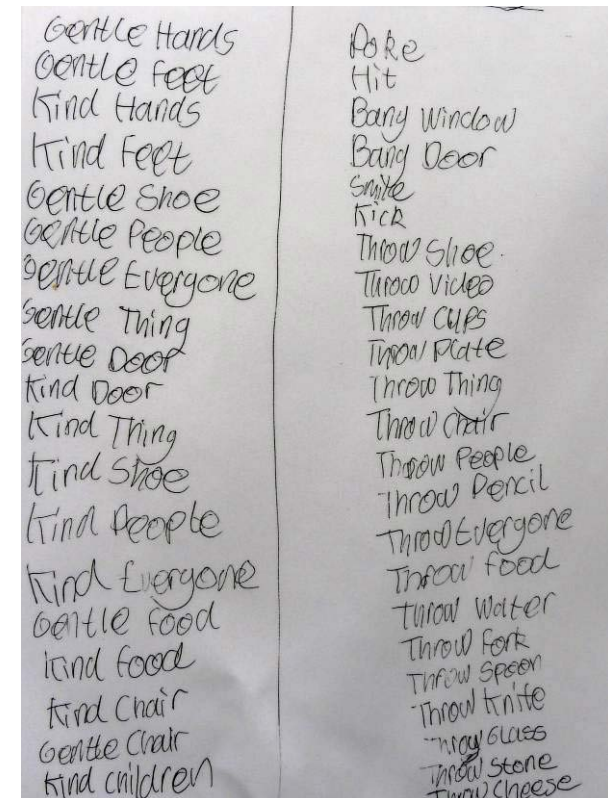 Gentle Hands
Gentle Feet
Kind Hands
Kind Feet
Gentle Shoe
Gentle People
Gentle Everyone
Gentle Thing
Gentle Door
Kind Door
Kind Thing
Kind Shoe
Kind People
Kind Everyone
Gentle Food
Kind Food
Kind Chair
Gentle Chair
Kind children
Poke
Hit
Bang Window
Bang Door
Smile
Kick
Throw Shoe
Throw Video
Throw Cups
Throw Plate
Throw Thing
Throw Chair
Throw People
Throw Pencil
Throw Everyone
Throw Food
Throw Water
Throw Fork
Throw Spoon
Throw Knife
Throw Glass
Throw Stone
Throw Cheese